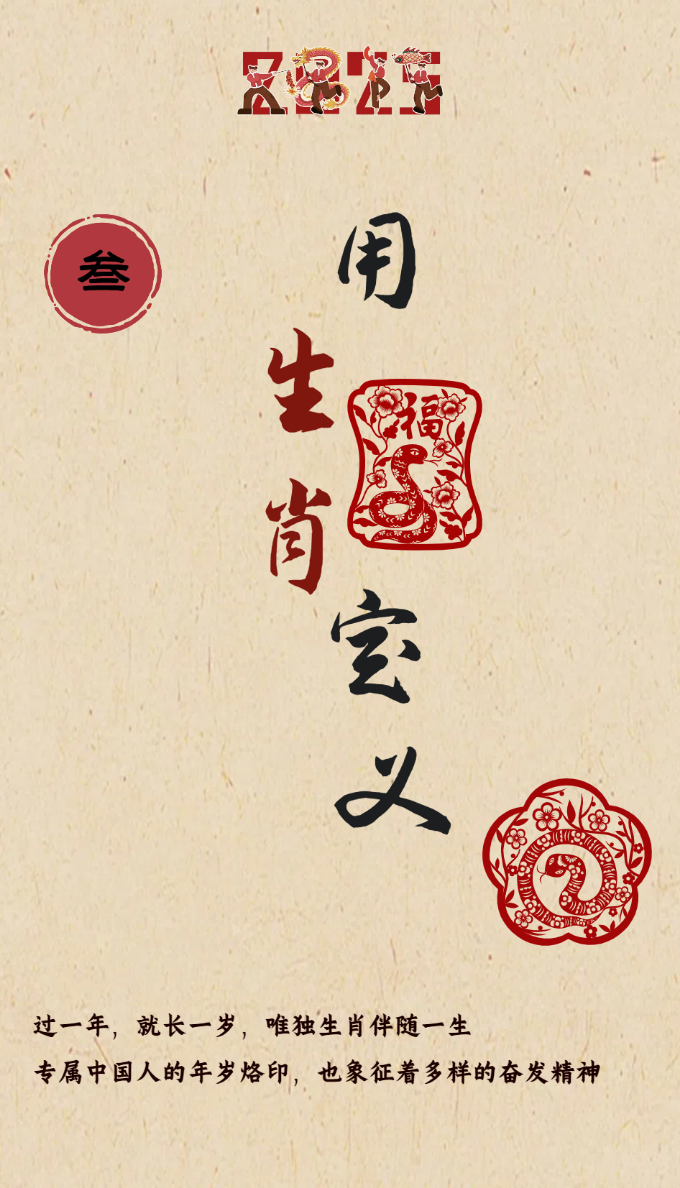 2025
叁
用
生
肖
福
定
义
过一年，就长一岁，唯独生肖伴随一生
专属中国人的年岁烙印，也象征着多样的奋发精神